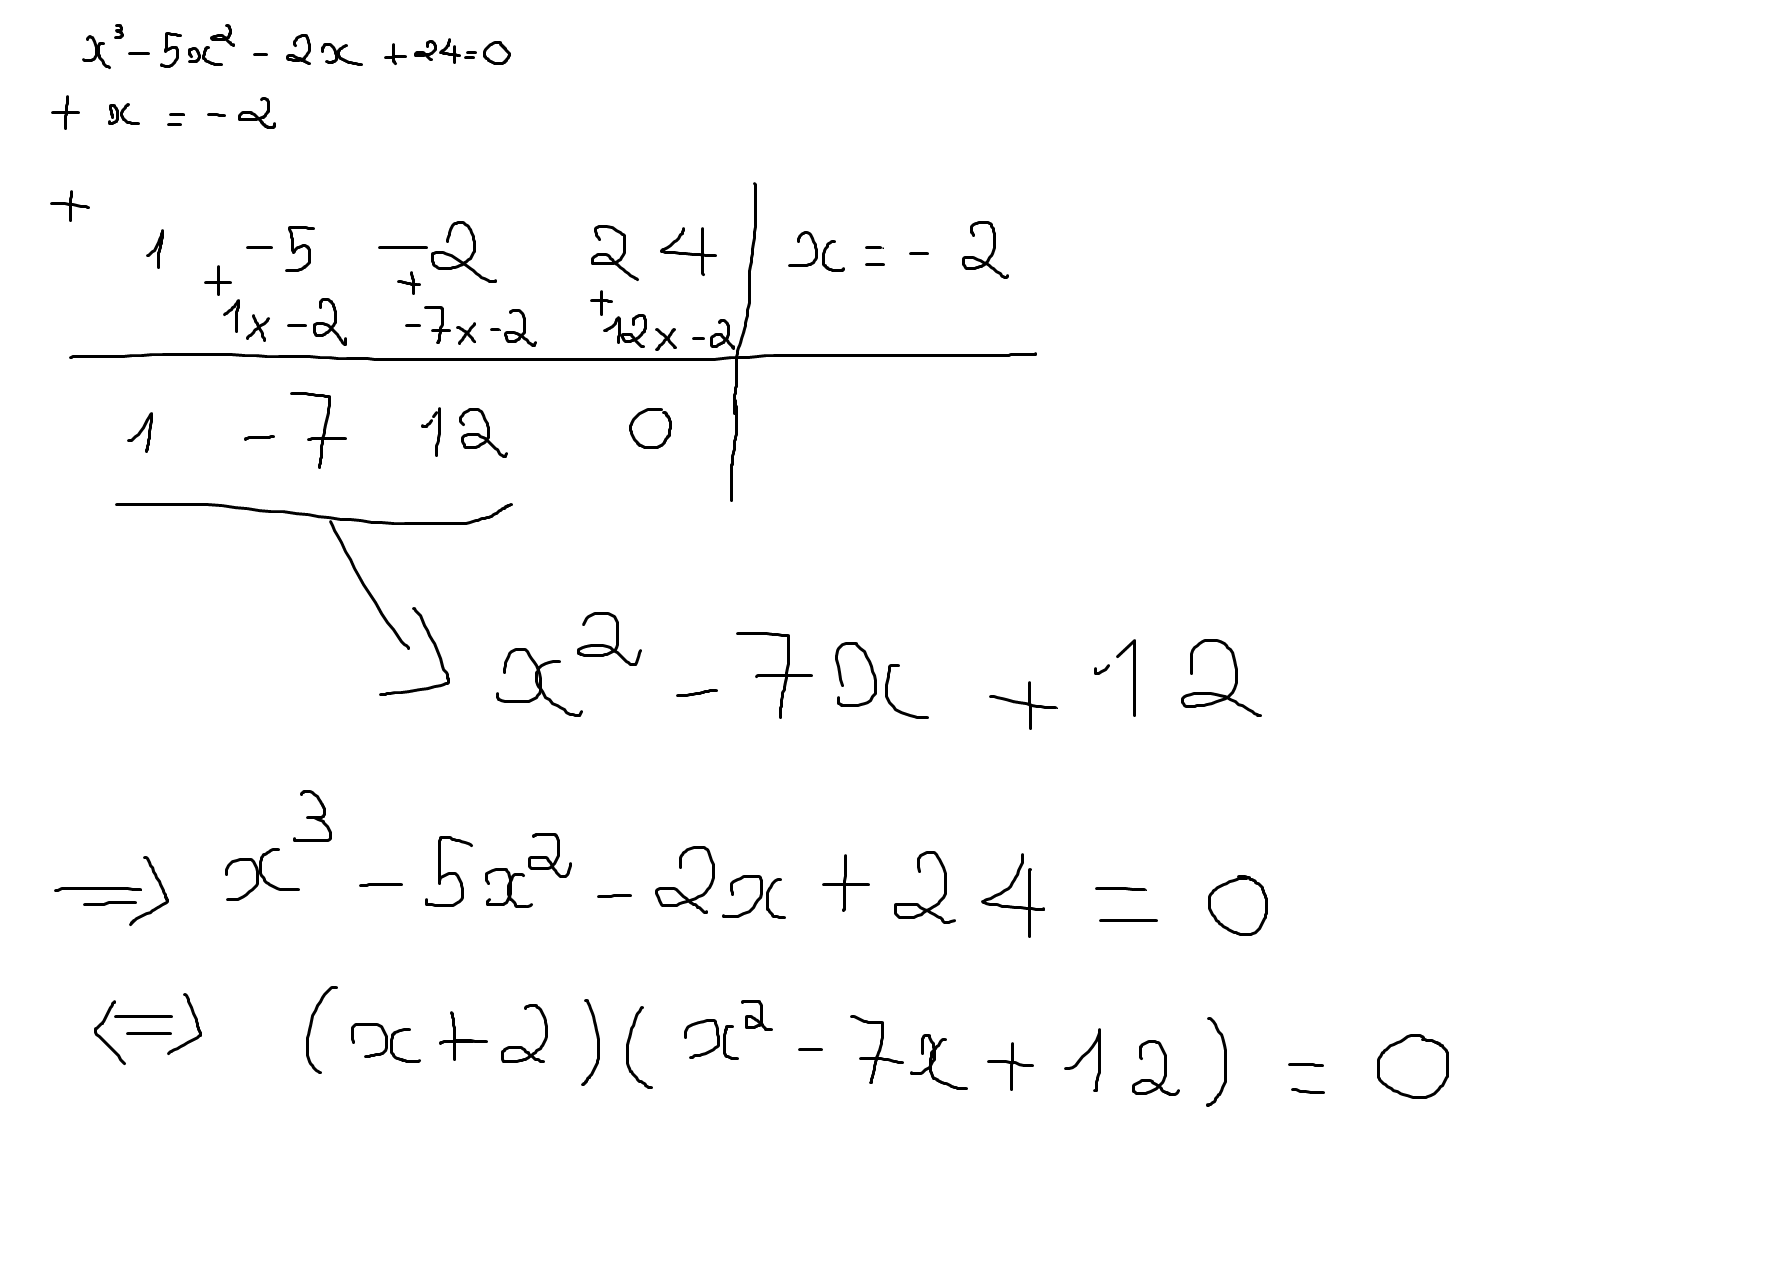 x³ - 5x² - 2x + 24 = 0
+ x = -2
+
1 -5 -2 24 x = -2
+ + +
1x-2 -7x-2 12x-2
1 -7 12 0
x² - 7x + 12
⇒ x³ - 5x² - 2x + 24 = 0
⇔ (x+2)(x² - 7x + 12) = 0